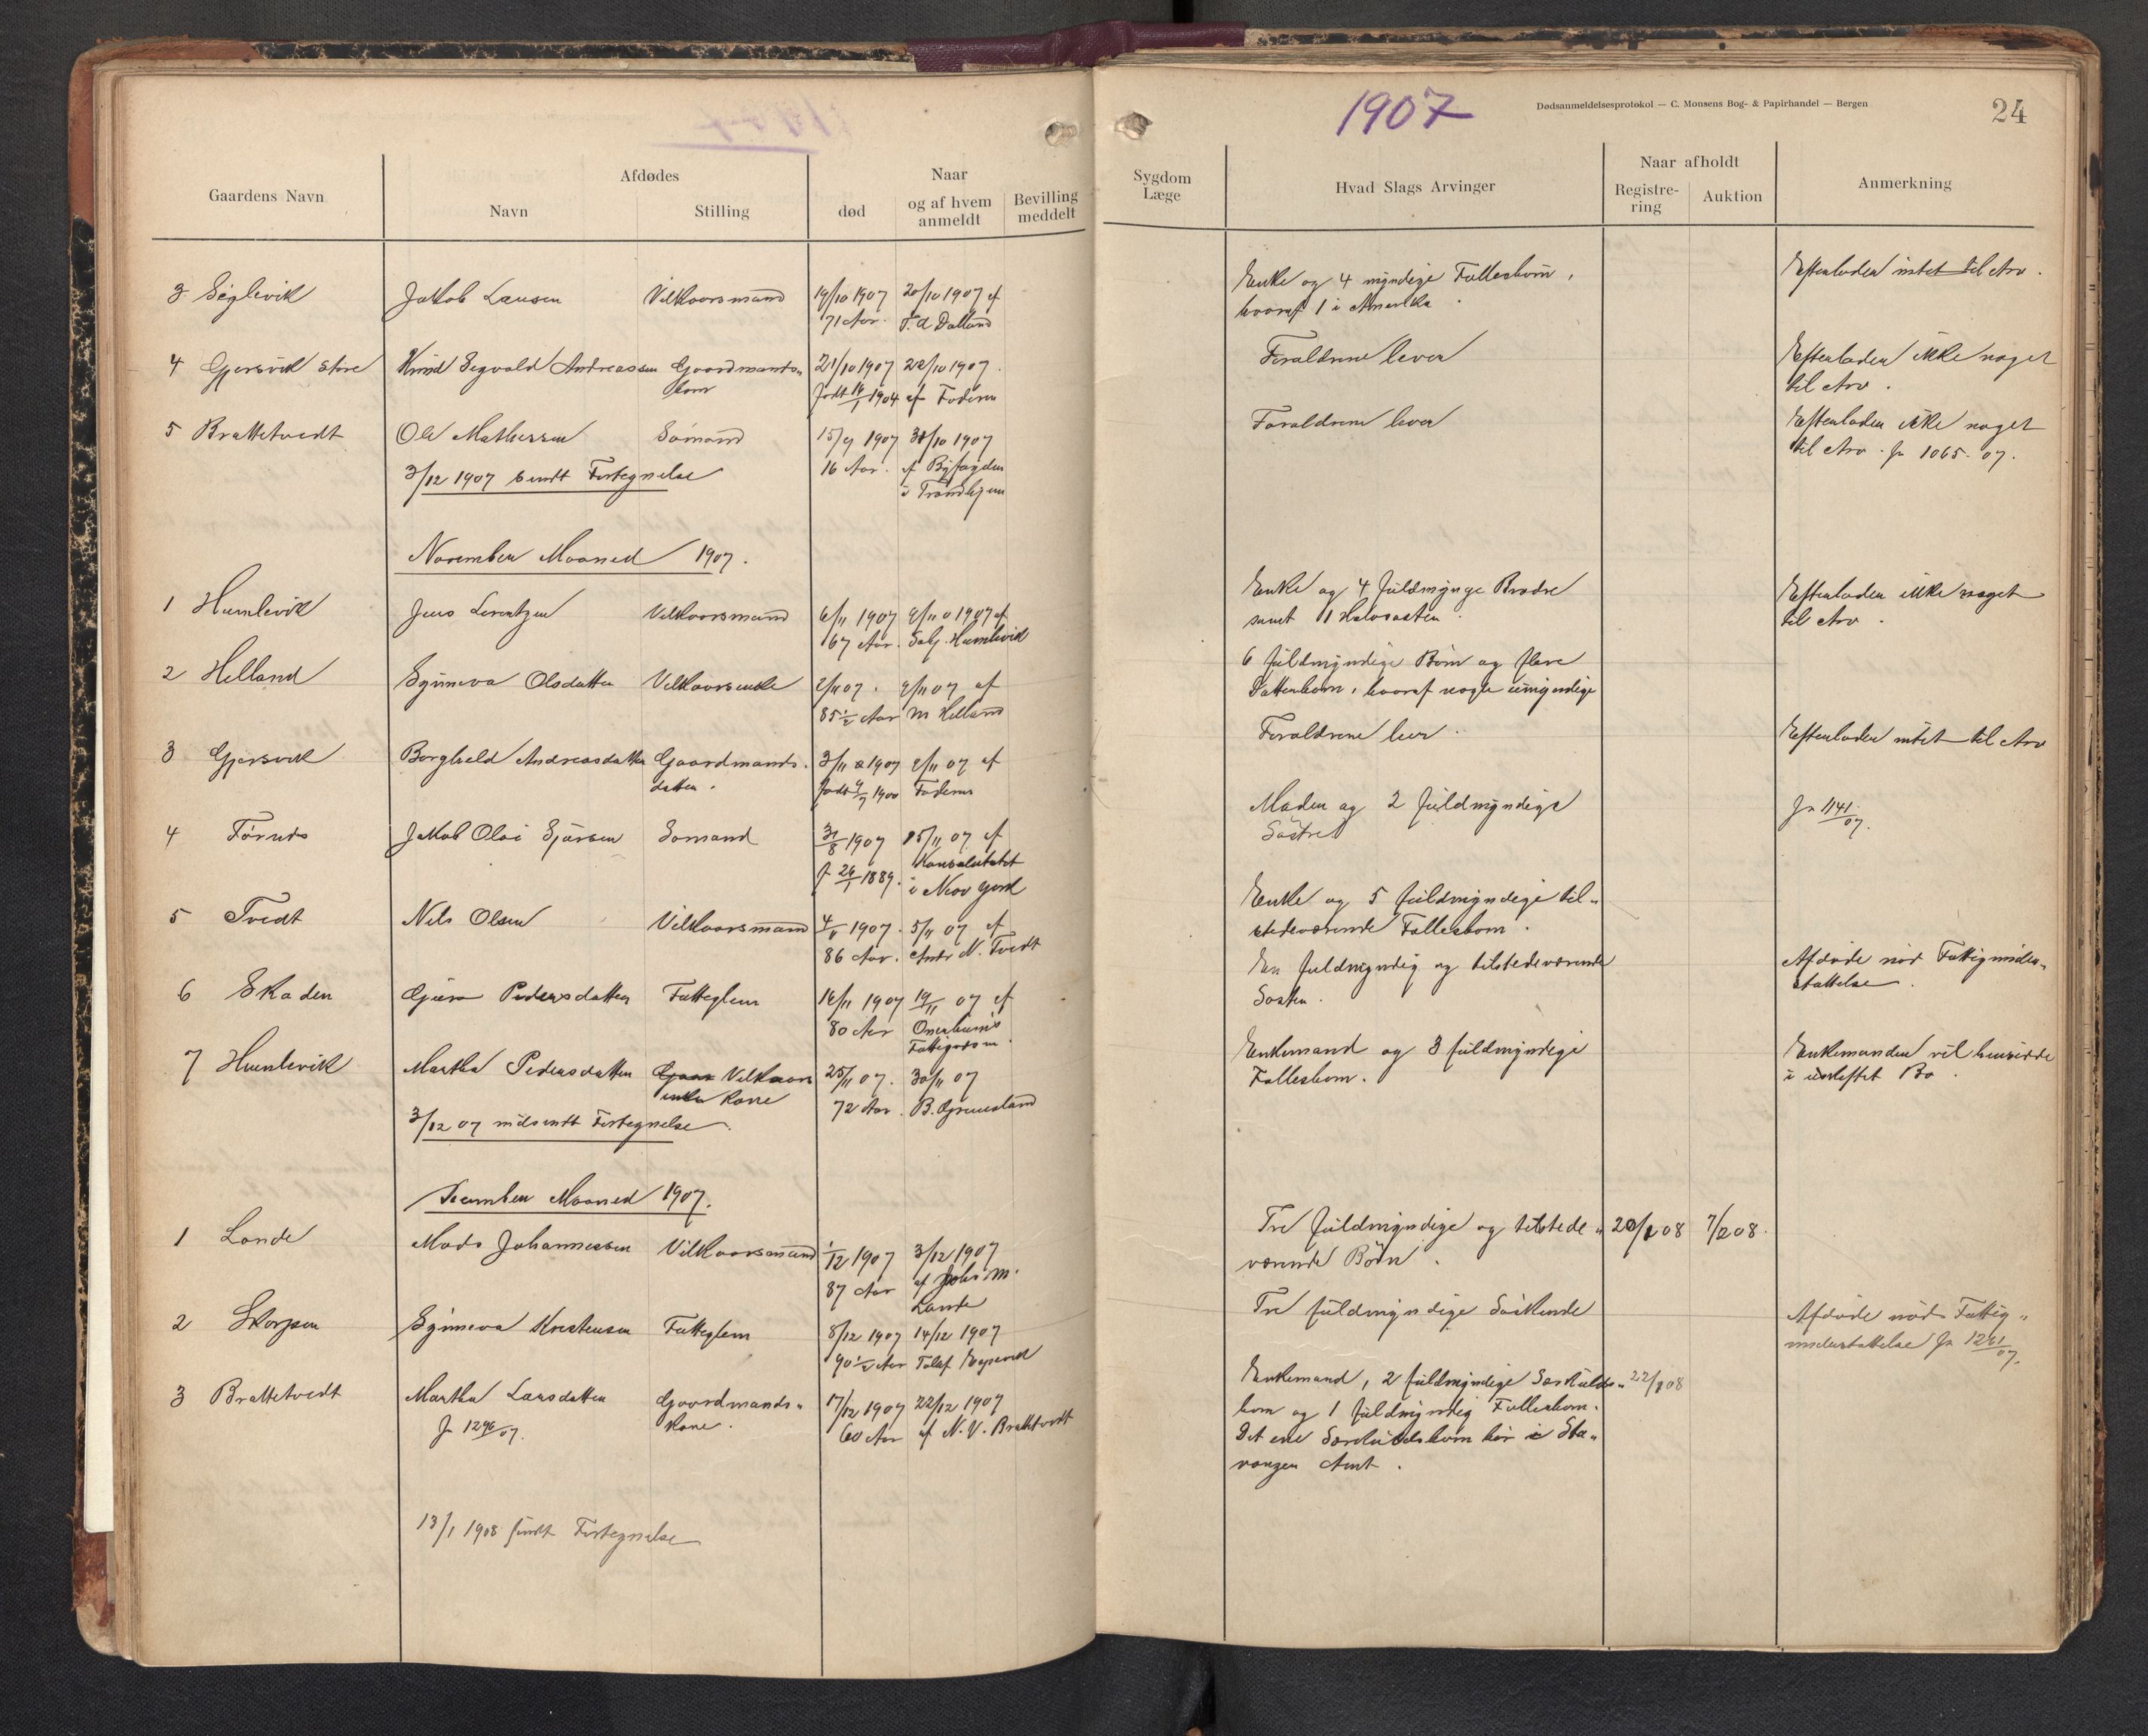 1907
Dødsanmeldelsesprotokol — C. Monsens Bog- & Papirhandel — Bergen
24
Gaardens Navn
Afdødes
Navn
Stilling
Naar
død
og af hvem anmeldt
Bevilling meddelt
Sygdom Læge
Hvad Slags Arvinger
Naar afholdt
Registrering
Auktion
Anmerkning
3 Seglevik Jakob Larsen Vilkaarsmand 19/10 1907 20/10 1907 af
71 Aar. T. A Dalland
Enke og 4 myndige Fællesbørn,
hvoraf 1 i Amerika.
Efterlader intet til Arv.
4 Gjersvik store Knud Segvald Andreassen Gaardmands-
barn
21/10 1907 22/10 1907.
født 14/1 1904 af Faderen
Forældrene lever
Efterlader ikke noget
til Arv.
5 Brattetvedt Ole Mathessen Sømand 15/9 1907 31/10 1907
16 Aar. af Byfogden
i Trondhjem
3/12 1907 sendt Fortegnelse
Forældrene lever
Efterlader ikke noget
til Arv. Jr 1065. 07.
November Maaned 1907.
1 Humlevik Jens Lorentzen Vilkaarsmand 6/11 1907 9/11 1907 af
67 Aar. Salj. Humlevik
Enke og 4 fuldmynge Brødre
samt 1 Halvsøster.
Efterlader ikke noget
til Arv.
2 Helland Synneva Olsdatter Vilkaarsenke 2/11 07. 9/11 07 af
85 1/2 Aar M Helland
6 fuldmyndige Børn og flere
Datterbørn, hvoraf nogle umyndige
3 Gjersvik Borghild Andreasdatter Gaardmands-
datter.
3/11 1907 9/11 07 af
født 4/7 1900 Faderen
Forældrene lever.
Efterlader intet til Arv
4 Jakob Olai Sjursen Sømand 31/8 1907 15/11 07 af
f 26/1 1889. Konsulatet
i New York
Moder og 2 fuldmyndige
Søstre
Jr 1141/07.
5 Tvedt Nils Olsen Vilkaarsmand 4/11 1907. 5/11 07 af
86 Aar. N. Tvedt
Enke og 5 fuldmyndige til-
stedeværende Fællesbørn.
6 Skaden Pedersdatter Fattiglem 16/11 1907 19/11 07 af
80 Aar
En fuldmyndig og tilstedeværende
Søster.
Afdøde nød Fattigunder-
støttelse.
7 Humlevik Martha Pedersdatter Vilkaars
kone
25/11 07. 30/11 07
72 Aar. B. Grønsland
3/12 07 indsendt Fortegnelse.
Enkemand og 3 fuldmyndige
Fællesbørn.
Enkemanden vil hensidde
i uskiftet Bo.
December Maaned 1907.
1 Lande Mads Johannessen Vilkaarsmand 1/12 1907 3/12 1907
87 Aar af Johs M.
Lande
Tre fuldmyndige og tilstede-
værende Børn.
20/1 08 7/2 08.
2 Skorpen Synneva Kristensen Fattiglem 8/12 1907 14/12 1907
90 1/2 Aar Tollef
Tre fuldmyndige Søskende
Afdøde nød Fattig-
understøttelse Jr 1261/07.
3 Brattetvedt Martha Larsdatter Gaardmands-
kone.
17/12 1907 22/12 1907
60 Aar af N. V. Brattetvedt
Jr 1296/07.
Enkemand, 2 fuldmyndige Særkulds-
børn og 1 fuldmyndig Fællesbarn.
Det ene Særkuldsbarn bor i Sta-
vanger Amt.
22/1 08
13/1 1908 sendt Fortegnelse